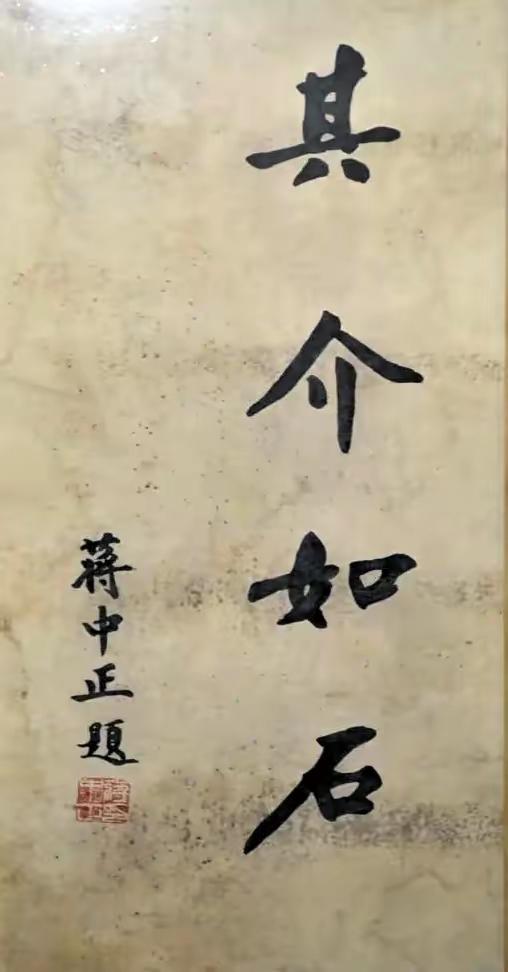 其介如石
蒋中正題